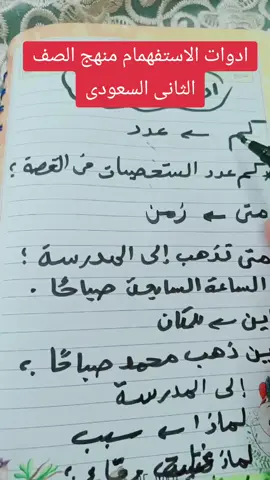 ادوات الاستفهمام منهج الصف
الثانى السعودى
كم ← عدد
كم عدد الشخصيات في القصة ؟
متى ← زمن
متى تذهب إلى المدرسة ؟
الساعة السابعة صباحًا .
اين ← مكان
اين ذهب محمد صباحًا ؟
إلى المدرسة
لماذا ← سبب